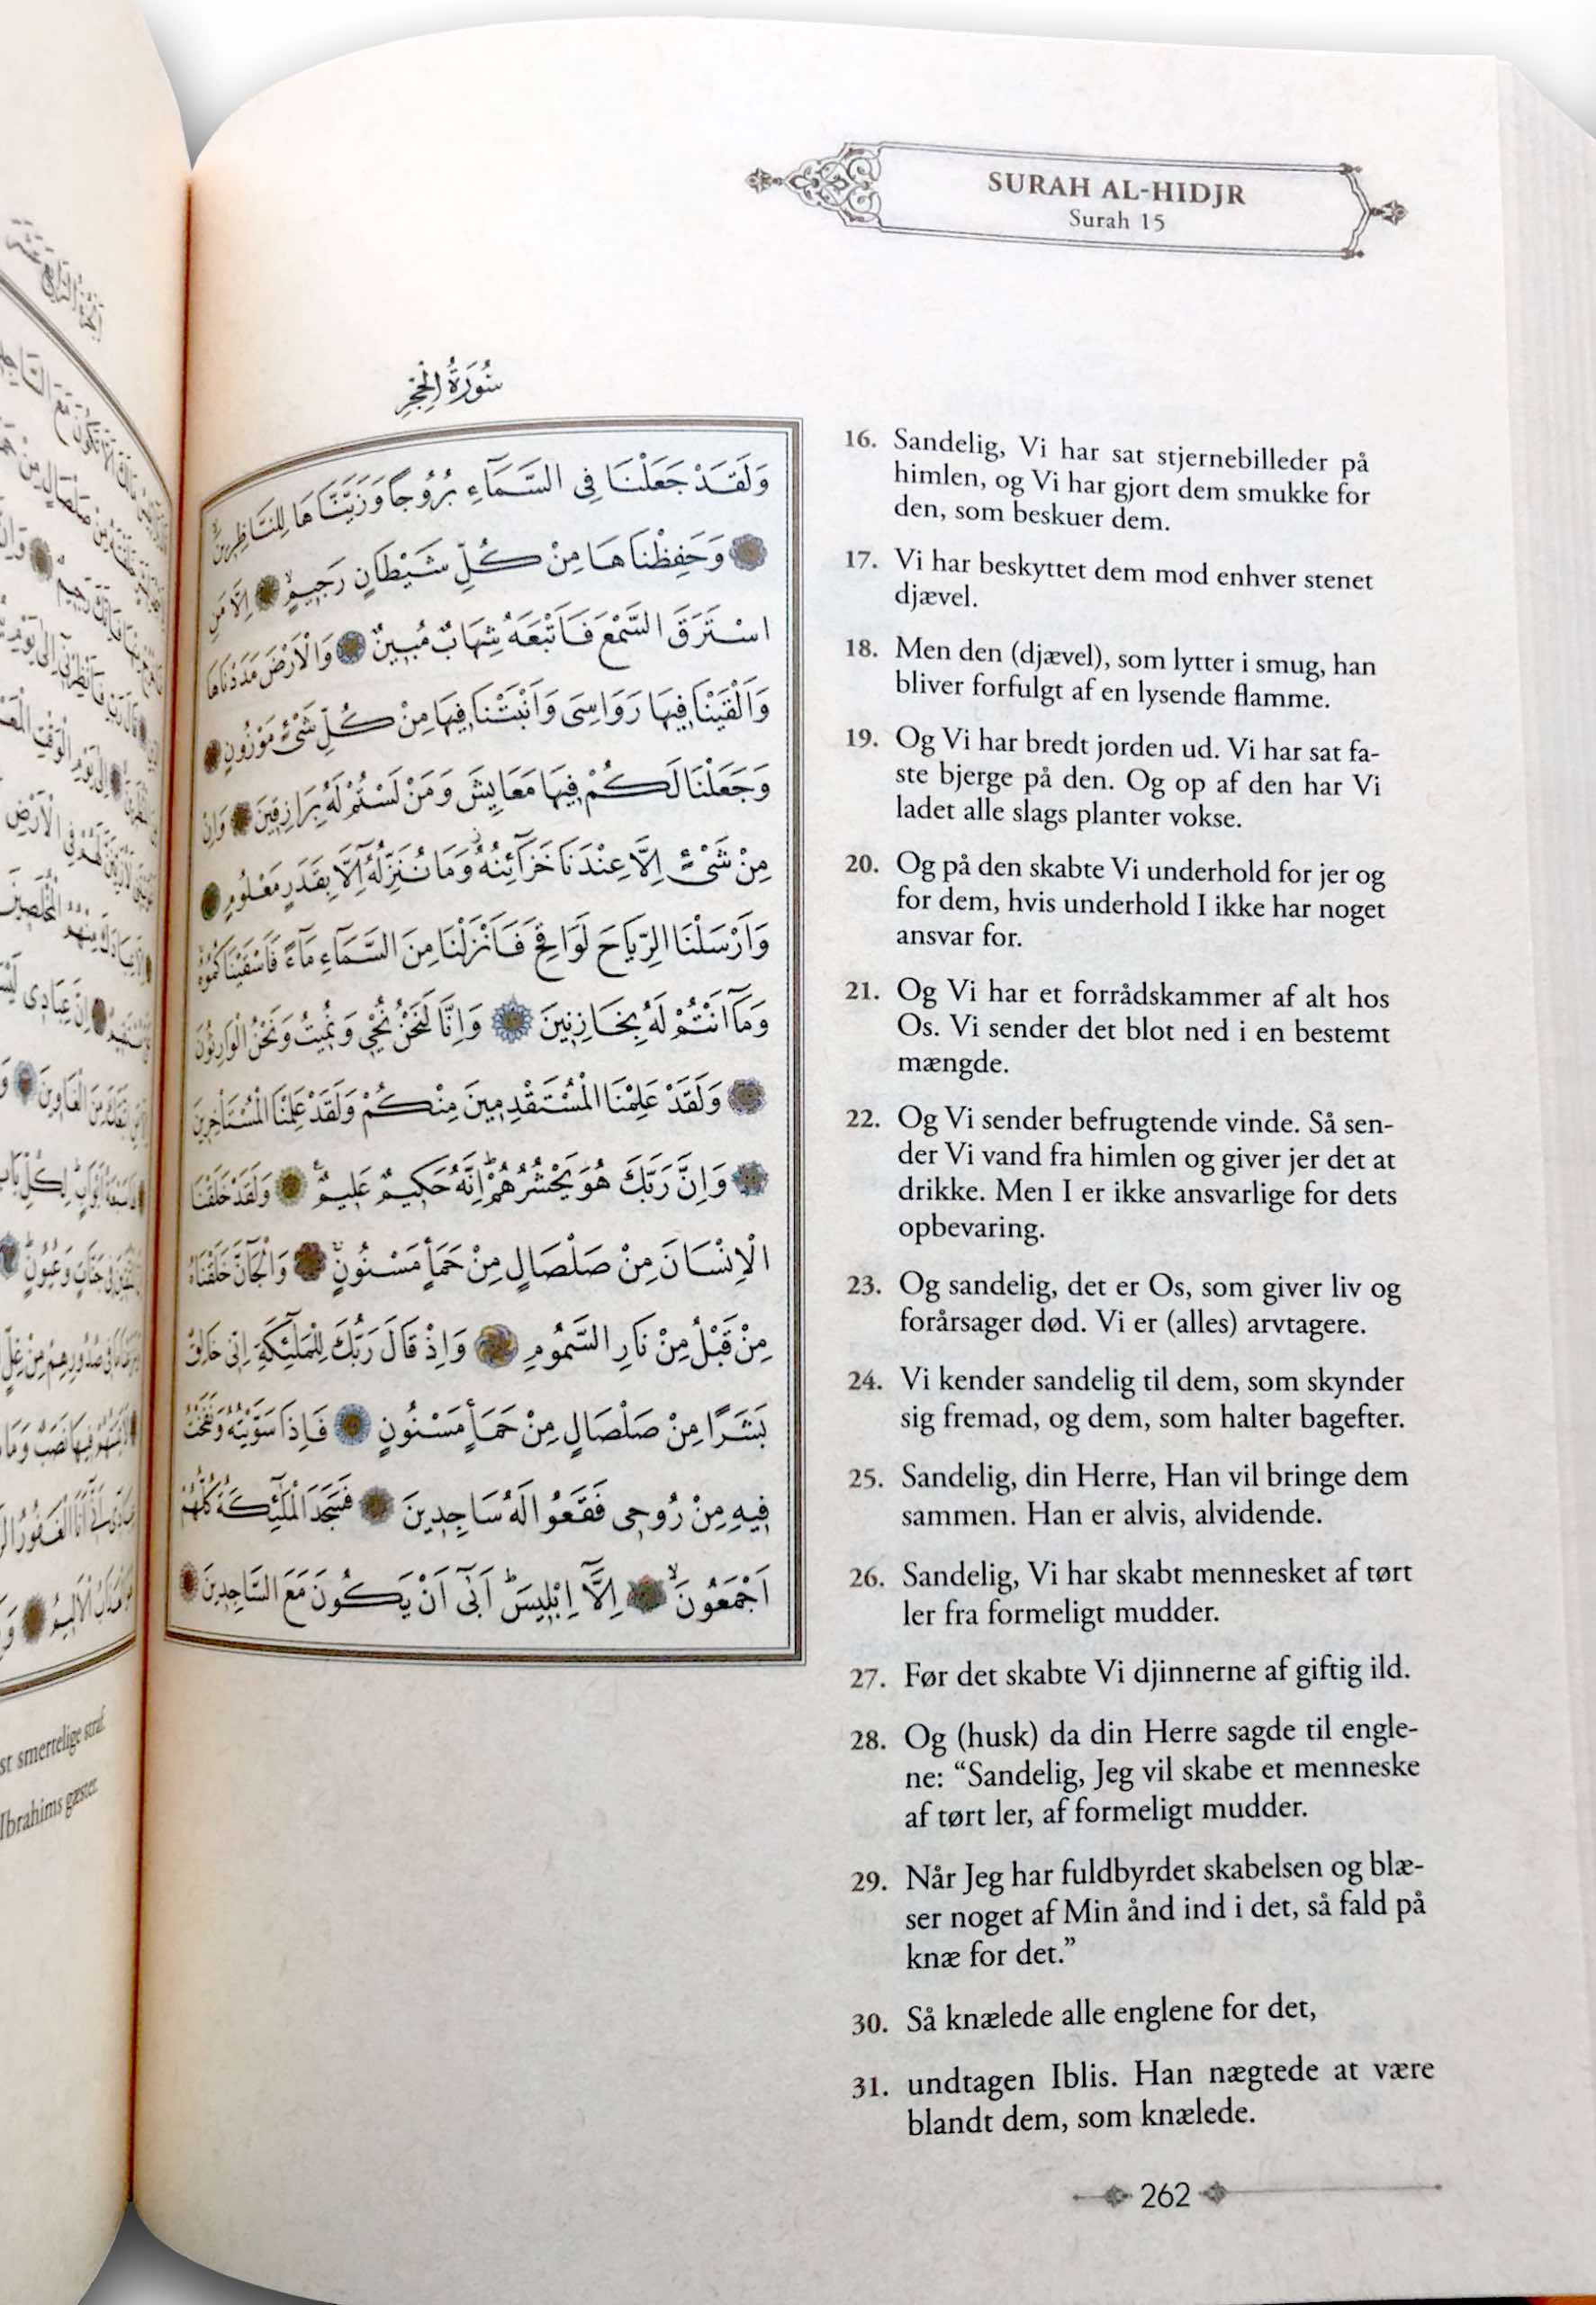 SURAH AL-HIDJR
Surah 15
سُورَةُ الْحِجْرِ
وَلَقَدْ جَعَلْنَا فِى السَّمَٓاءِ بُرُوجاً وَزَيَّنَّاهَا لِلنَّاظِرِينَۙ
وَحَفِظْنَاهَا مِنْ كُلِّ شَيْطَانٍ رَجِيمٍۙ اِلَّا مَنِ
اسْتَرَقَ السَّمْعَ فَاَتْبَعَهُ شِهَابٌ مُبِينٌ وَالْاَرْضَ مَدَدْنَاهَا
وَاَلْقَيْنَا فِيهَا رَوَاسِىَ وَاَنْبَتْنَا فِيهَا مِنْ كُلِّ شَىْءٍ مَوْزُونٍ
وَجَعَلْنَا لَكُمْ فِيهَا مَعَايِشَ وَمَنْ لَسْتُمْ لَهُ بِرَازِقِينَ وَاِنْ
مِنْ شَىْءٍ اِلَّا عِنْدَنَا خَزَٓائِنُهُۘ وَمَا نُنَزِّلُهُٓ اِلَّا بِقَدَرٍ مَعْلُومٍ
وَاَرْسَلْنَا الرِّيَاحَ لَوَاقِحَ فَاَنْزَلْنَا مِنَ السَّمَٓاءِ مَٓاءً فَاَسْقَيْنَاكُمُوهُۚ
وَمَٓا اَنْتُمْ لَهُ بِخَازِنِينَ وَاِنَّا لَنَحْنُ نُحْيِ وَنُمِيتُ وَنَحْنُ الْوَارِثُونَ
وَلَقَدْ عَلِمْنَا الْمُسْتَقْدِمِينَ مِنْكُمْ وَلَقَدْ عَلِمْنَا الْمُسْتَأْخِرِينَ
وَاِنَّ رَبَّكَ هُوَ يَحْشُرُهُمْۜ اِنَّهُ حَكِيمٌ عَلِيمٌ۟ وَلَقَدْ خَلَقْنَا
الْاِنْسَانَ مِنْ صَلْصَالٍ مِنْ حَمَأٍ مَسْنُونٍۚ وَالْجَٓانَّ خَلَقْنَاهُ
مِنْ قَبْلُ مِنْ نَارِ السَّمُومِ وَاِذْ قَالَ رَبُّكَ لِلْمَلٰٓئِكَةِ اِنِّى خَالِقٌ
بَشَرًا مِنْ صَلْصَالٍ مِنْ حَمَأٍ مَسْنُونٍ فَاِذَا سَوَّيْتُهُ وَنَفَخْتُ
فِيهِ مِنْ رُوحِى فَقَعُوا لَهُ سَاجِدِينَ فَسَجَدَ الْمَلٰٓئِكَةُ كُلُّهُمْ
اَجْمَعُونَۙ اِلَّٓا اِبْلِيسَۜ اَبٰٓى اَنْ يَكُونَ مَعَ السَّاجِدِينَ
16. Sandelig, Vi har sat stjernebilleder på
himlen, og Vi har gjort dem smukke for
den, som beskuer dem.
17. Vi har beskyttet dem mod enhver stenet
djævel.
18. Men den (djævel), som lytter i smug, han
bliver forfulgt af en lysende flamme.
19. Og Vi har bredt jorden ud. Vi har sat fa-
ste bjerge på den. Og op af den har Vi
ladet alle slags planter vokse.
20. Og på den skabte Vi underhold for jer og
for dem, hvis underhold I ikke har noget
ansvar for.
21. Og Vi har et forrådskammer af alt hos
Os. Vi sender det blot ned i en bestemt
mængde.
22. Og Vi sender befrugtende vinde. Så sen-
der Vi vand fra himlen og giver jer det at
drikke. Men I er ikke ansvarlige for dets
opbevaring.
23. Og sandelig, det er Os, som giver liv og
forårsager død. Vi er (alles) arvtagere.
24. Vi kender sandelig til dem, som skynder
sig fremad, og dem, som halter bagefter.
25. Sandelig, din Herre, Han vil bringe dem
sammen. Han er alvis, alvidende.
26. Sandelig, Vi har skabt mennesket af tørt
ler fra formeligt mudder.
27. Før det skabte Vi djinnerne af giftig ild.
28. Og (husk) da din Herre sagde til engle-
ne: “Sandelig, Jeg vil skabe et menneske
af tørt ler, af formeligt mudder.
29. Når Jeg har fuldbyrdet skabelsen og blæ-
ser noget af Min ånd ind i det, så fald på
knæ for det.”
30. Så knælede alle englene for det,
31. undtagen Iblis. Han nægtede at være
blandt dem, som knælede.
262
smertelige straf.
Ibrahims gæster.